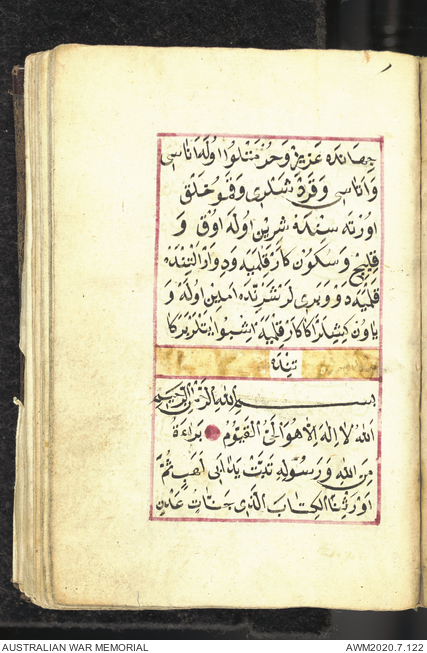 جهانده عزيز وحرمتلو اوله اناسى
و اناسى و قرد شلرى و قو خلق
اوزرنه سنكه شرين اوله اوق و
قليج و سكون كار قلميه ودوار النيده
قلميه دو وبرى لر شرنده امين اوله و
ياون كيشلر اكا كار قلميه
بنده
بسم الله الرحمن الرحيم
الله لا اله الا هو الحى القيوم براءة
من الله ورسوله تبت يدا ابى لهب ثم
اورثنا الكتاب الذى جنات عدن
AUSTRALIAN WAR MEMORIAL
AWM2020.7.122